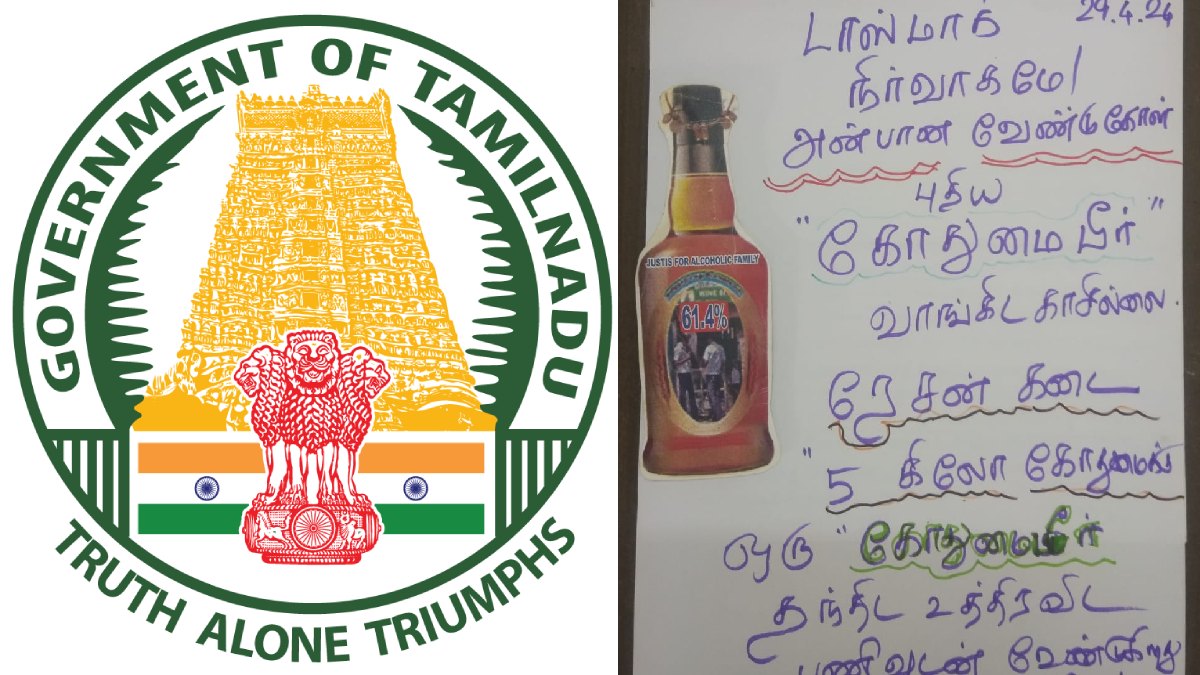 GOVERNMENT OF TAMILNADU
TRUTH ALONE TRIUMPHS
29.4.24
டாஸ்மாக்
நிர்வாகமே!
அன்பான வேண்டுகோள்
புதிய
"கோதுமை பீர்"
வாங்கிட காசில்லை.
ரேசன் கடை
"5 கிலோ கோதுமைக்
ஒரு "கோதுமைபீர்
தந்திட உத்திரவிட
பணிவுடன் வேண்டுகிறது
JUSTIS FOR ALCOHOLIC FAMILY
61.4%